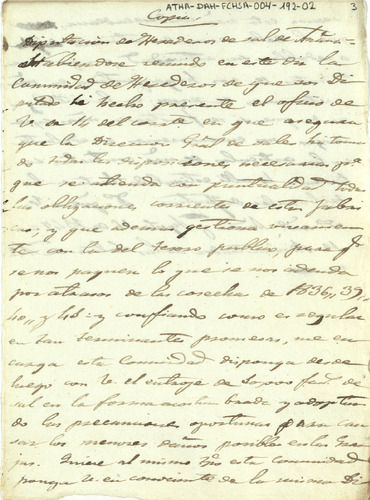 ATHA-DAH-FCHSA-004-192-02
3
Copia
Diputacion de Herederos de sal de Añana.
Habiendose reunido en este dia la
Comunidad de Herederos de que soy Di
putado he hecho presente el oficio de
V. de 14 del corrte en que asegura
que la Direccion Gral de sales ha toma
do todas las disposiciones necesarias pa
que se atienda con puntualidad todas
las obligaciones corrientes de estas fabri
cas, y que ademas gestiona vivamen
te con la del tesoro publico, para q.
se nos paguen lo que se nos adeuda
por atrasos de las cosechas de 1836, 39,
40, y 41: y confiando como es regular
en tan terminantes promesas, me en
carga esta Comunidad disponga desde
luego con V. el entroje de fan.s de
sal en la forma acostumbrada y adoptan
do las precauciones oportunas para cau
sar los menores daños posibles en las Gran
jas. Quiere al mismo tpo esta Comunidad
ponga V. en conocimto de la misma Di